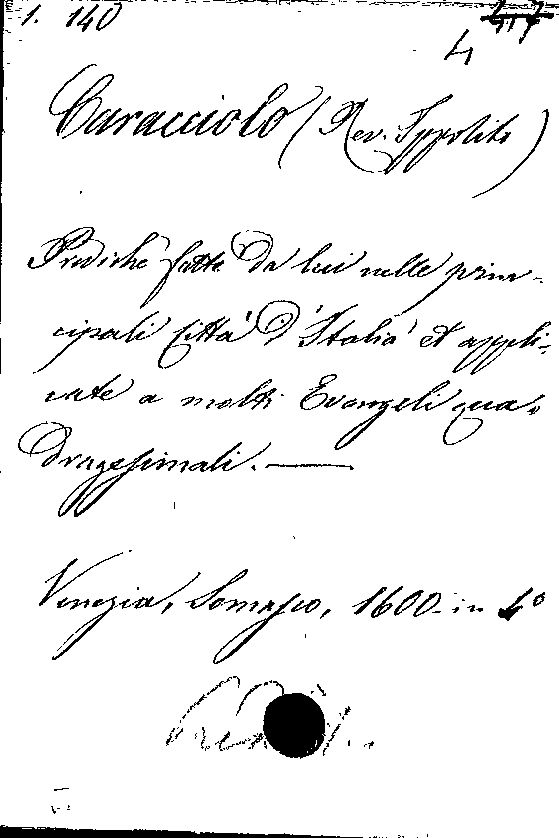 1. 140
4
Caracciolo (Rev. Ippolito)
Prediche fatte da lui nelle prin-
cipali Città d'Italia et appli-
cate a molti Evangeli qua-
dragesimali. —
Venezia, Somasco, 1600. in 4º